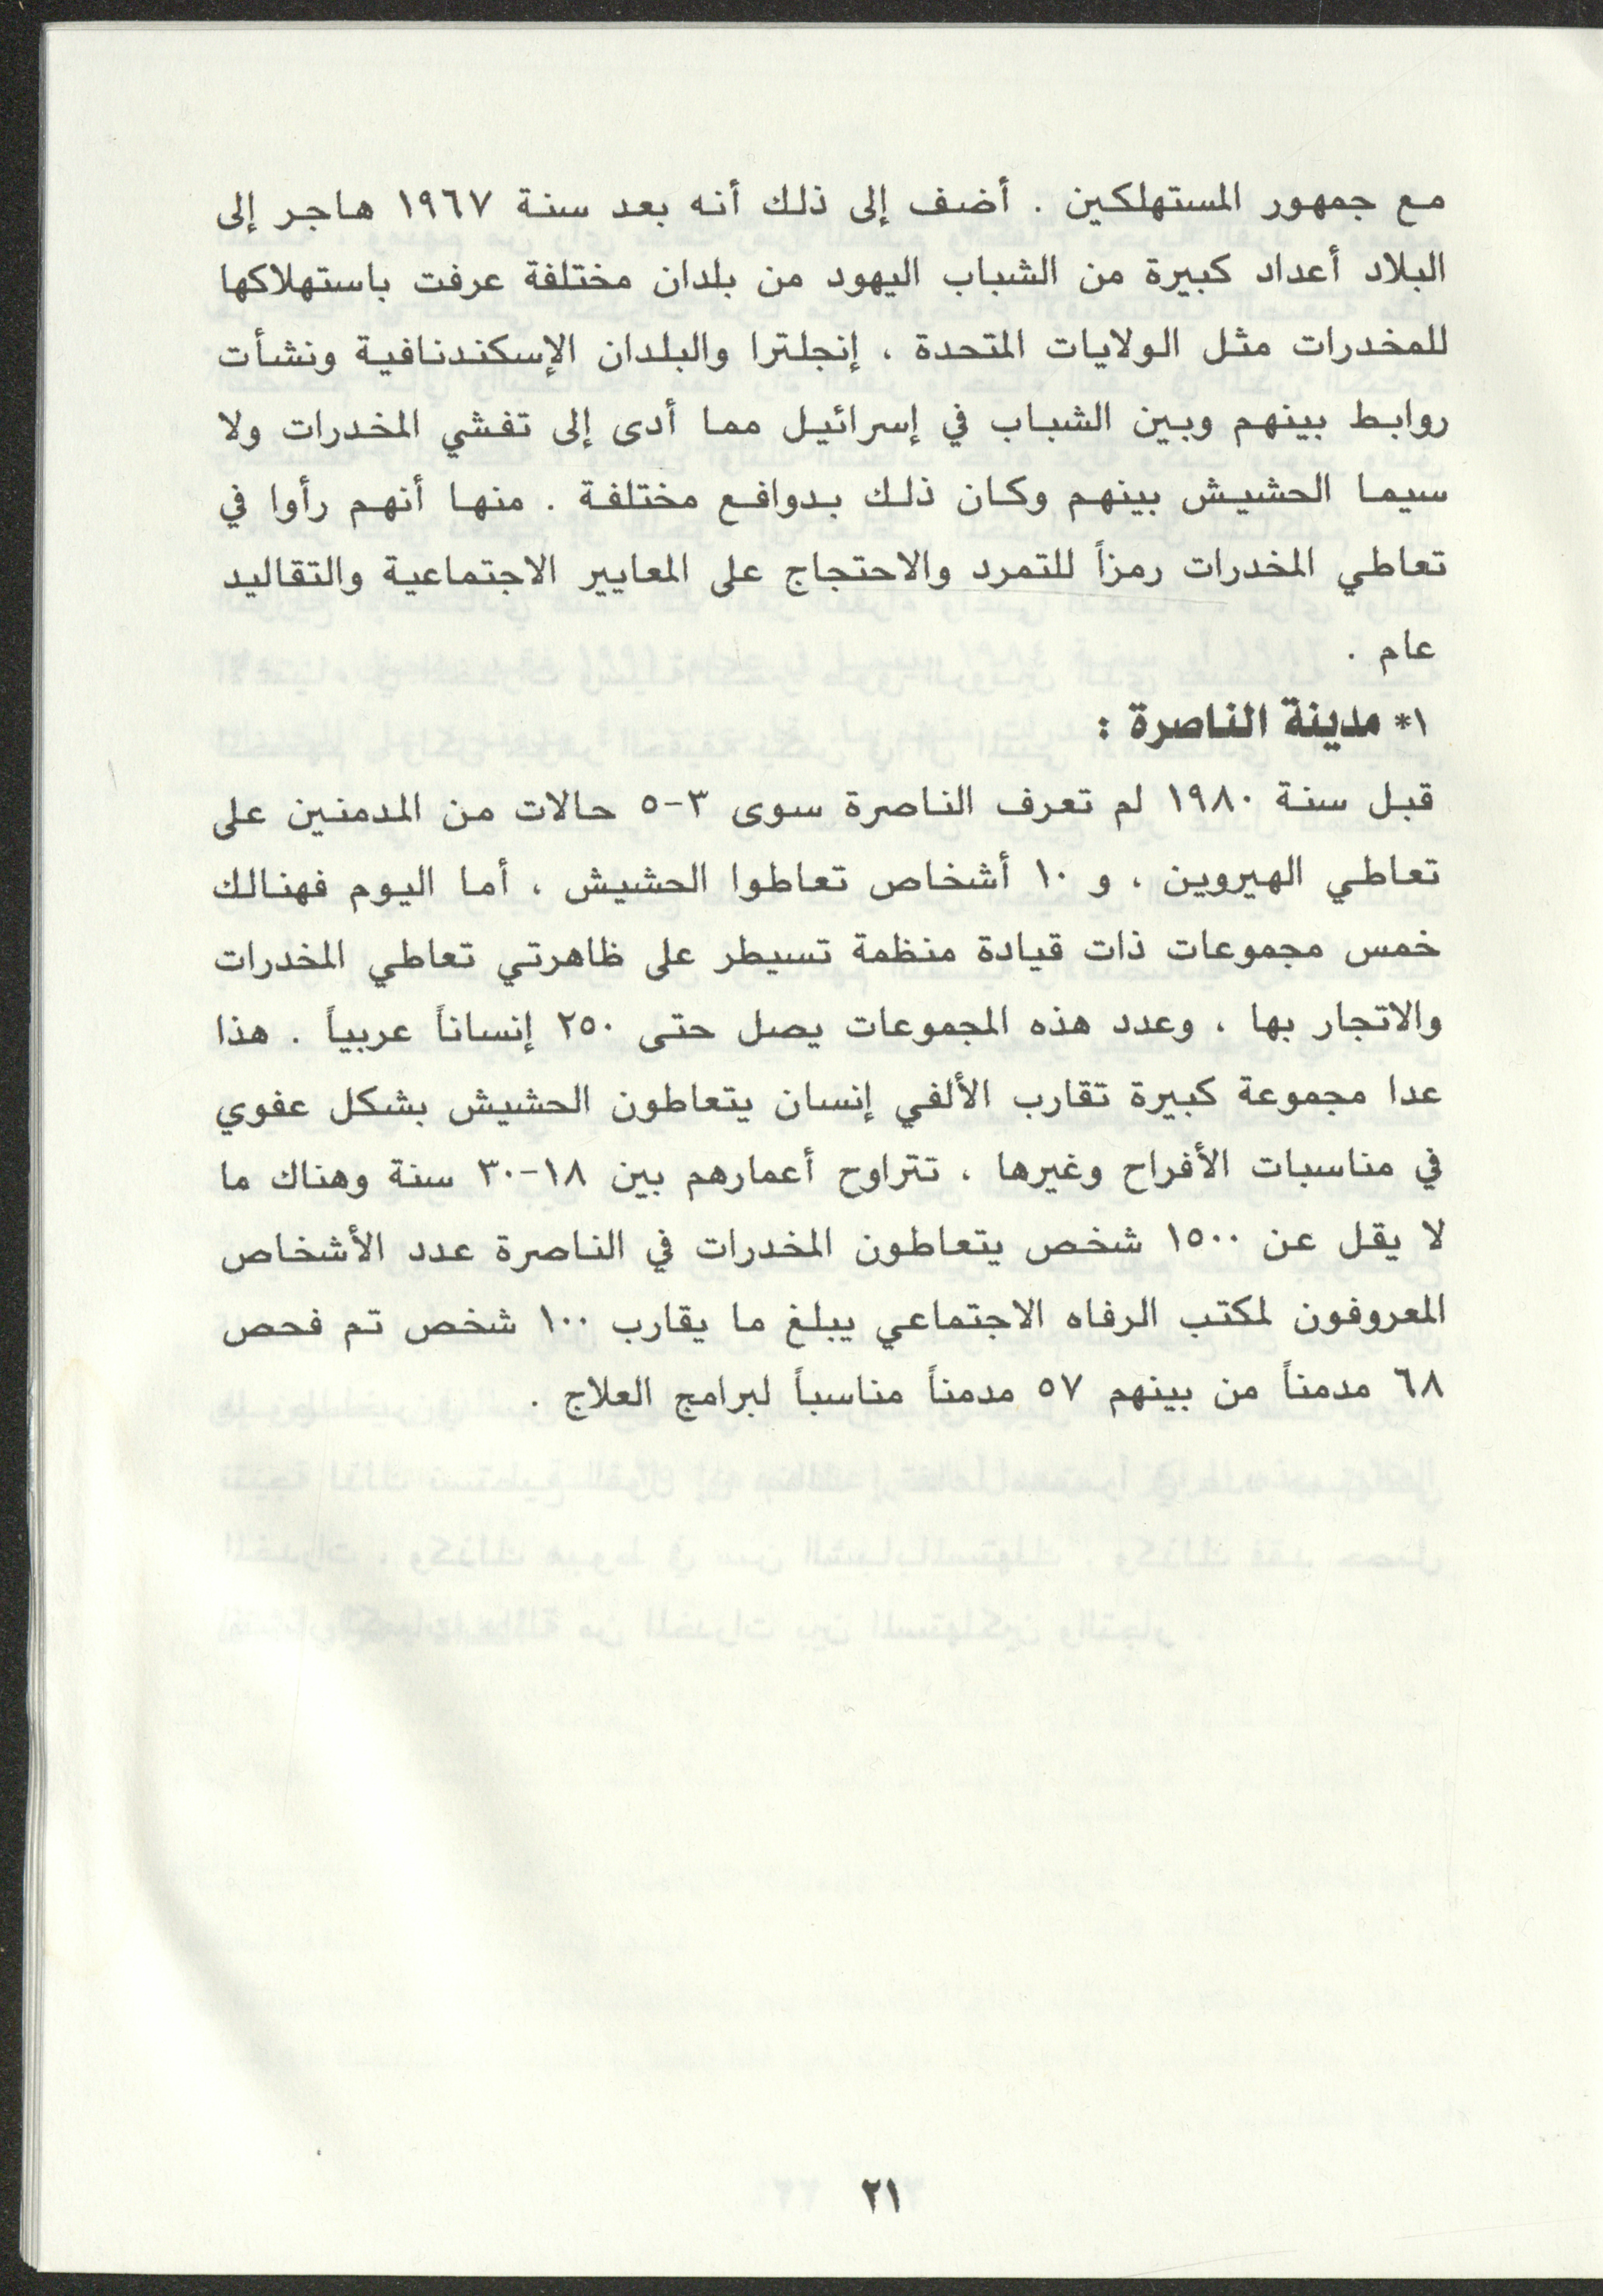 مع جمهور المستهلكين . أضف إلى ذلك أنه بعد سنة ١٩٦٧ هاجر إلى
البلاد أعداد كبيرة من الشباب اليهود من بلدان مختلفة عرفت باستهلاكها
للمخدرات مثل الولايات المتحدة ، إنجلترا والبلدان الإسكندنافية ونشأت
روابط بينهم وبين الشباب في إسرائيل مما أدى إلى تفشي المخدرات ولا
سيما الحشيش بينهم وكان ذلك بدوافع مختلفة . منها أنهم رأوا في
تعاطي المخدرات رمزاً للتمرد والاحتجاج على المعايير الاجتماعية والتقاليد
عام .
١* مدينة الناصرة :
قبل سنة ١٩٨٠ لم تعرف الناصرة سوى ٣-٥ حالات من المدمنين على
تعاطي الهيروين ، و ١٠ أشخاص تعاطوا الحشيش ، أما اليوم فهنالك
خمس مجموعات ذات قيادة منظمة تسيطر على ظاهرتي تعاطي المخدرات
والاتجار بها ، وعدد هذه المجموعات يصل حتى ٢٥٠ إنساناً عربياً . هذا
عدا مجموعة كبيرة تقارب الألفي إنسان يتعاطون الحشيش بشكل عفوي
في مناسبات الأفراح وغيرها ، تتراوح أعمارهم بين ١٨-٣٠ سنة وهناك ما
لا يقل عن ١٥٠٠ شخص يتعاطون المخدرات في الناصرة عدد الأشخاص
المعروفون لمكتب الرفاه الاجتماعي يبلغ ما يقارب ١٠٠ شخص تم فحص
٦٨ مدمناً من بينهم ٥٧ مدمناً مناسباً لبرامج العلاج .
٢١